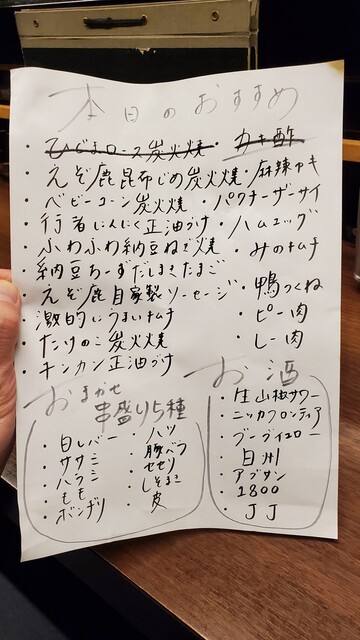 本日のおすすめ
・ひぐまロース炭火焼 ・カキ酢
・えぞ鹿昆布じめ炭火焼 ・麻辣カキ
・ベビーコーン炭火焼 ・パクチーザーサイ
・行者にんにく正油づけ ・ハムエッグ
・ふわふわ納豆ねぎ焼 ・みのキムチ
・納豆ちーずだしまきたまご
・えぞ鹿自家製ソーセージ ・鴨つくね
・激的にうまいキムチ ・ピー肉
・たけのこ炭火焼 ・しー肉
・キンカン正油づけ
おまかせ
串盛り5種
・白レバー ・ハツ
・ササミ ・豚バラ
・ハラミ ・せせり
・もも ・しそまき
・ボンヂリ ・皮
お酒
・生山椒サワー
・ニッカフロンティア
・ブーブイエロー
・白州
・アブサン
・1800
・JJ